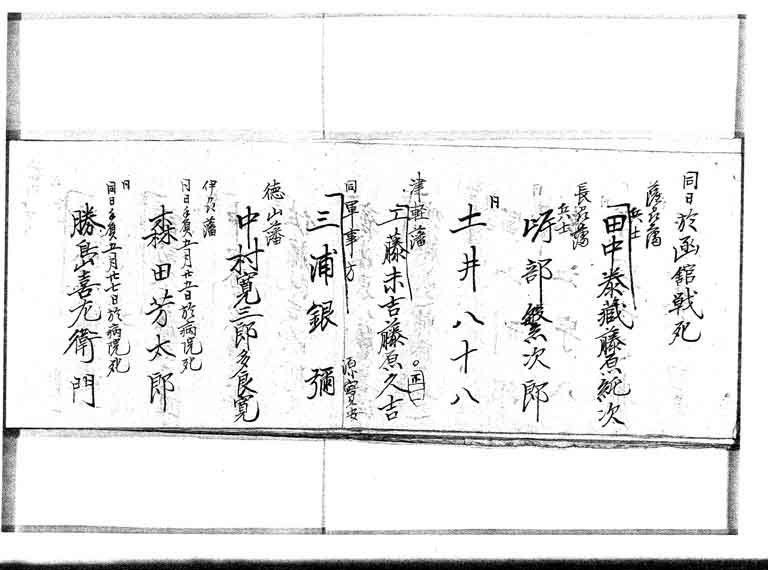 同日於函館戦死
藩
兵士
田中泰藏藤原純次
長沼藩
兵士
部繁次郎
同
土井八十八
津軽藩
工藤末吉藤原久吉
同軍事方
三浦銀彌
徳山藩
中村寛三郎多良寛
藩
同日手負五月廿五日於病院死
森田芳太郎
同
同日手負五月廿七日於病院死
勝島喜左衛門